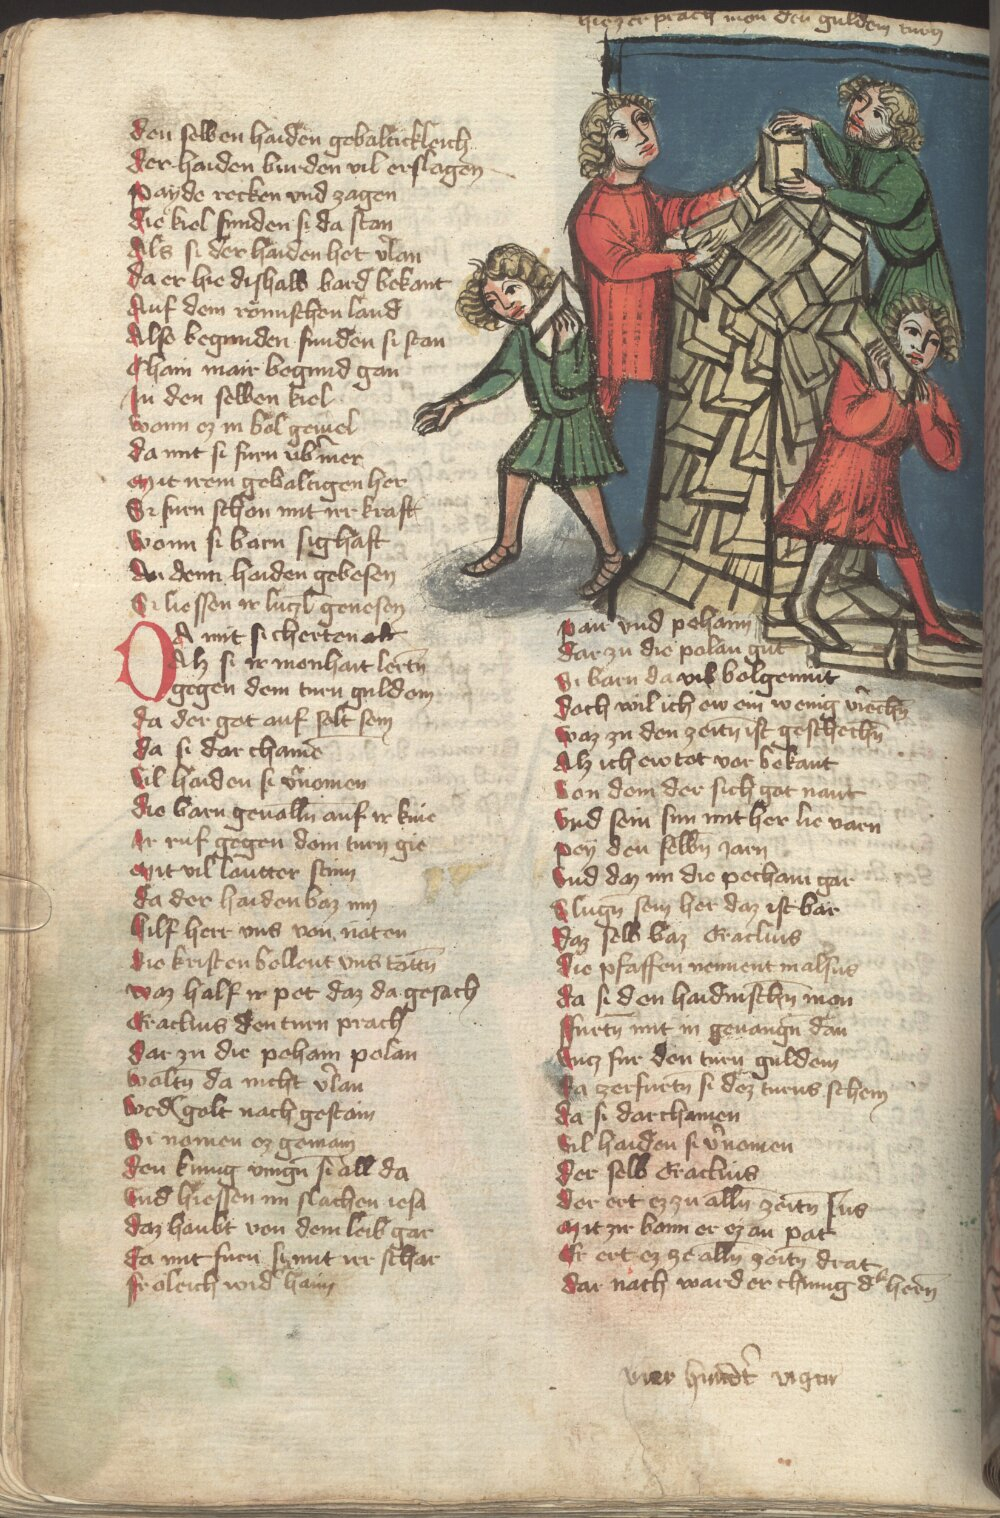 hie zerprach man den guldem turn
den selben haiden gebaltickleich
der haiden burden vil erslagen
payde recken vnd zagen
die kiel funden si da stan
Als si der haiden het v̄lan
da er hie dishalb bard bekant
Auf dem römischen land
Also begunden funden si stan
Chain mair begund gan
In den selben kiel
wann ez in bol geuiel
da mit si furn vb̄ mer
mit irem gebaltigen her
Si furn schon mit irr kraft
wann si barn sighaft
An dem haiden gebesen
Si liessen ir luczl genesen
Da mit si cherten
Alz si ir manhait lertn̄
gegen dem turn guldem
da der got auf solt sein
da si dar chamē
Vil haiden si v̄nomen
die barn geualln̄ auf ir knie
Ir ruf gegen dem turn gie
mit vil lautter stim
da der haiden baz inn
hilf herr vns von näten
die kristen bellent vns tottn̄
waz half ir pet daz da gesach
Eraclius den turn prach
dar zu die peham polan
woltn̄ da nicht v̄lan
wed̄ golt nach gestain
Si namen ez gemain
den kunig viengn̄ si all da
vnd hiessen im slachen iesa
daz haubt von dem leib gar
da mit furn si mit irr schar
fröleich wid̄ haim
pair vnd peham
dar zu die polan gut
Si barn da all bolgemut
doch wil ich ew ein wenig v̄iechn̄
waz zu den zeitn̄ ist geschechn̄
Alz ich ew tet vor bekant
Von dem der sich got nant
vnd sein sun mit her lie varn
pey den selbn̄ iarn
vnd daz im die pecham gar
Slugn̄ sein her daz ist bar
daz selb baz Eraclius
die pfaffen nennent malsus
da si den haidnischn̄ man
furtn̄ mit in geuangn̄ dan
vncz fur den turn guldem
da zerfurtn̄ si dez turns schein
da si dar chamen
Vil haiden si v̄nomen
der selb Eraclius
der ert ez zu alln̄ zeitn̄ sus
mit zir bann er ez an pat
Er ert ez ze alln̄ zeitn̄ drat
dar nach ward er chunig d̄ hern̄
vier hundt̄ vigur